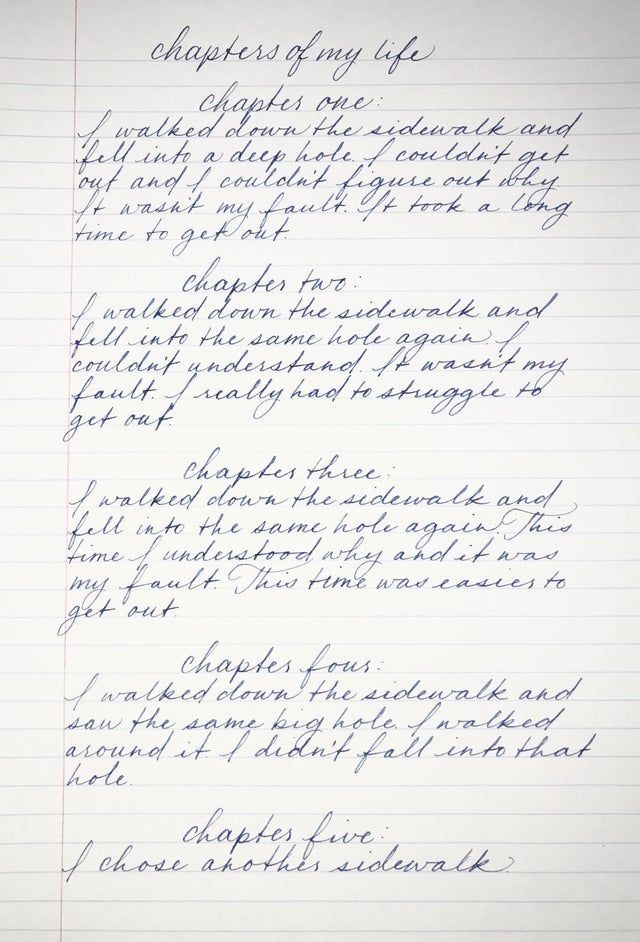 chapters of my life
chapter one:
I walked down the sidewalk and
fell into a deep hole. I couldn't get
out and I couldn't figure out why.
It wasn't my fault. It took a long
time to get out.
chapter two:
I walked down the sidewalk and
fell into the same hole again. I
couldn't understand. It wasn't my
fault. I really had to struggle to
get out.
chapter three:
I walked down the sidewalk and
fell into the same hole again. This
time I understood why and it was
my fault. This time was easier to
get out.
chapter four:
I walked down the sidewalk and
saw the same big hole. I walked
around it. I didn't fall into that
hole.
chapter five:
I chose another sidewalk.